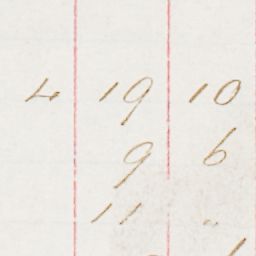 4 19 10
9 6
11 "